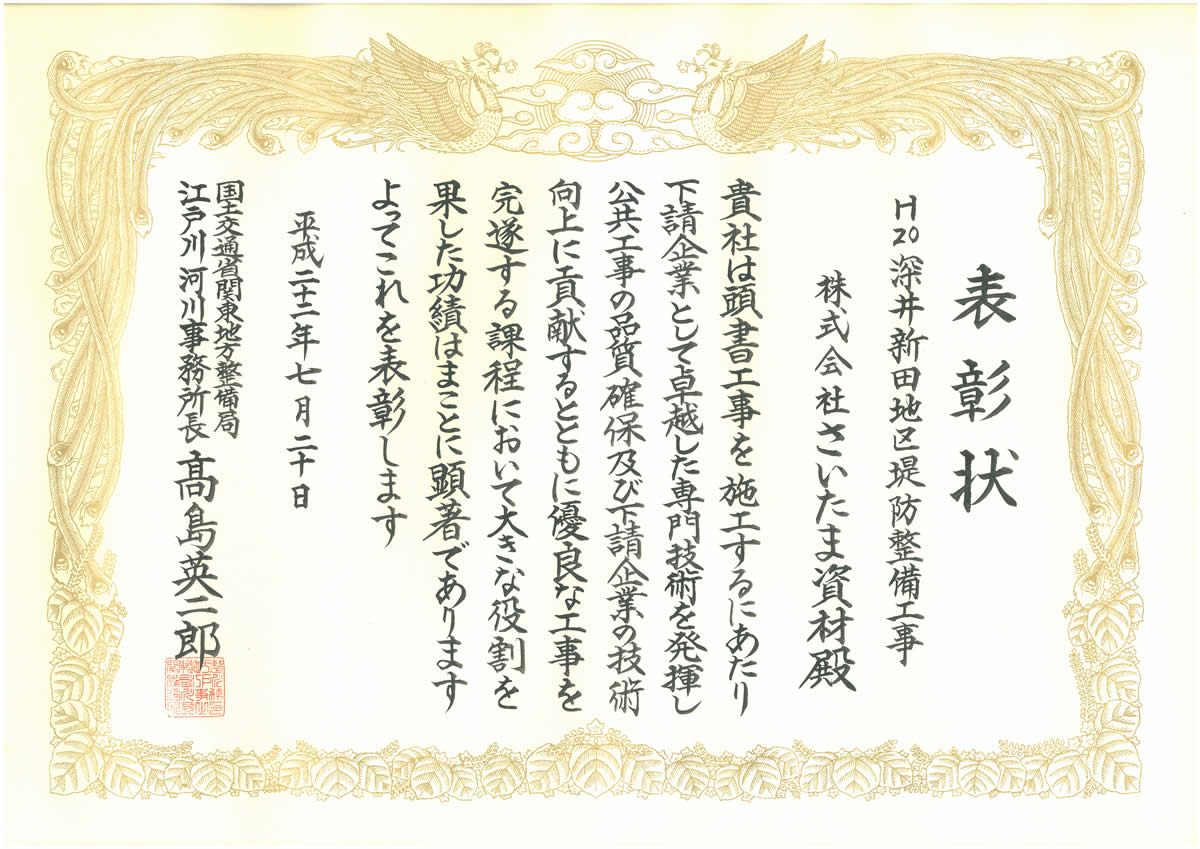 表彰状
H20深井新田地区堤防整備工事
株式会社さいたま資材殿
貴社は頭書工事を施工するにあたり
下請企業として卓越した専門技術を発揮し
公共工事の品質確保及び下請企業の技術
向上に貢献するとともに優良な工事を
完遂する課程において大きな役割を
果した功績はまことに顕著であります
よってこれを表彰します
平成二十二年七月二十日
国土交通省関東地方整備局
江戸川河川事務所長 髙島英二郎